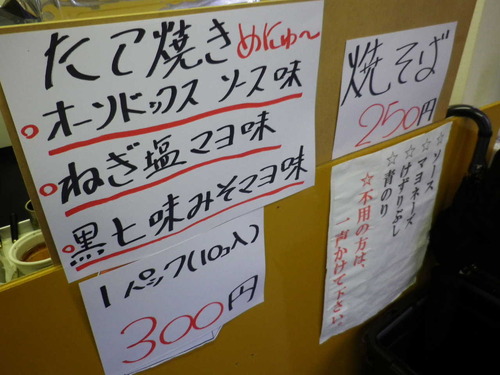 たこ焼き めにゅ〜
オーソドックス ソース味
ねぎ塩マヨ味
黒七味みそマヨ味
1パック(10コ入)
300円
焼そば
250円
☆ソース
☆マヨネーズ
☆けずりぶし
☆青のり
☆不用の方は、
一声かけて下さい。